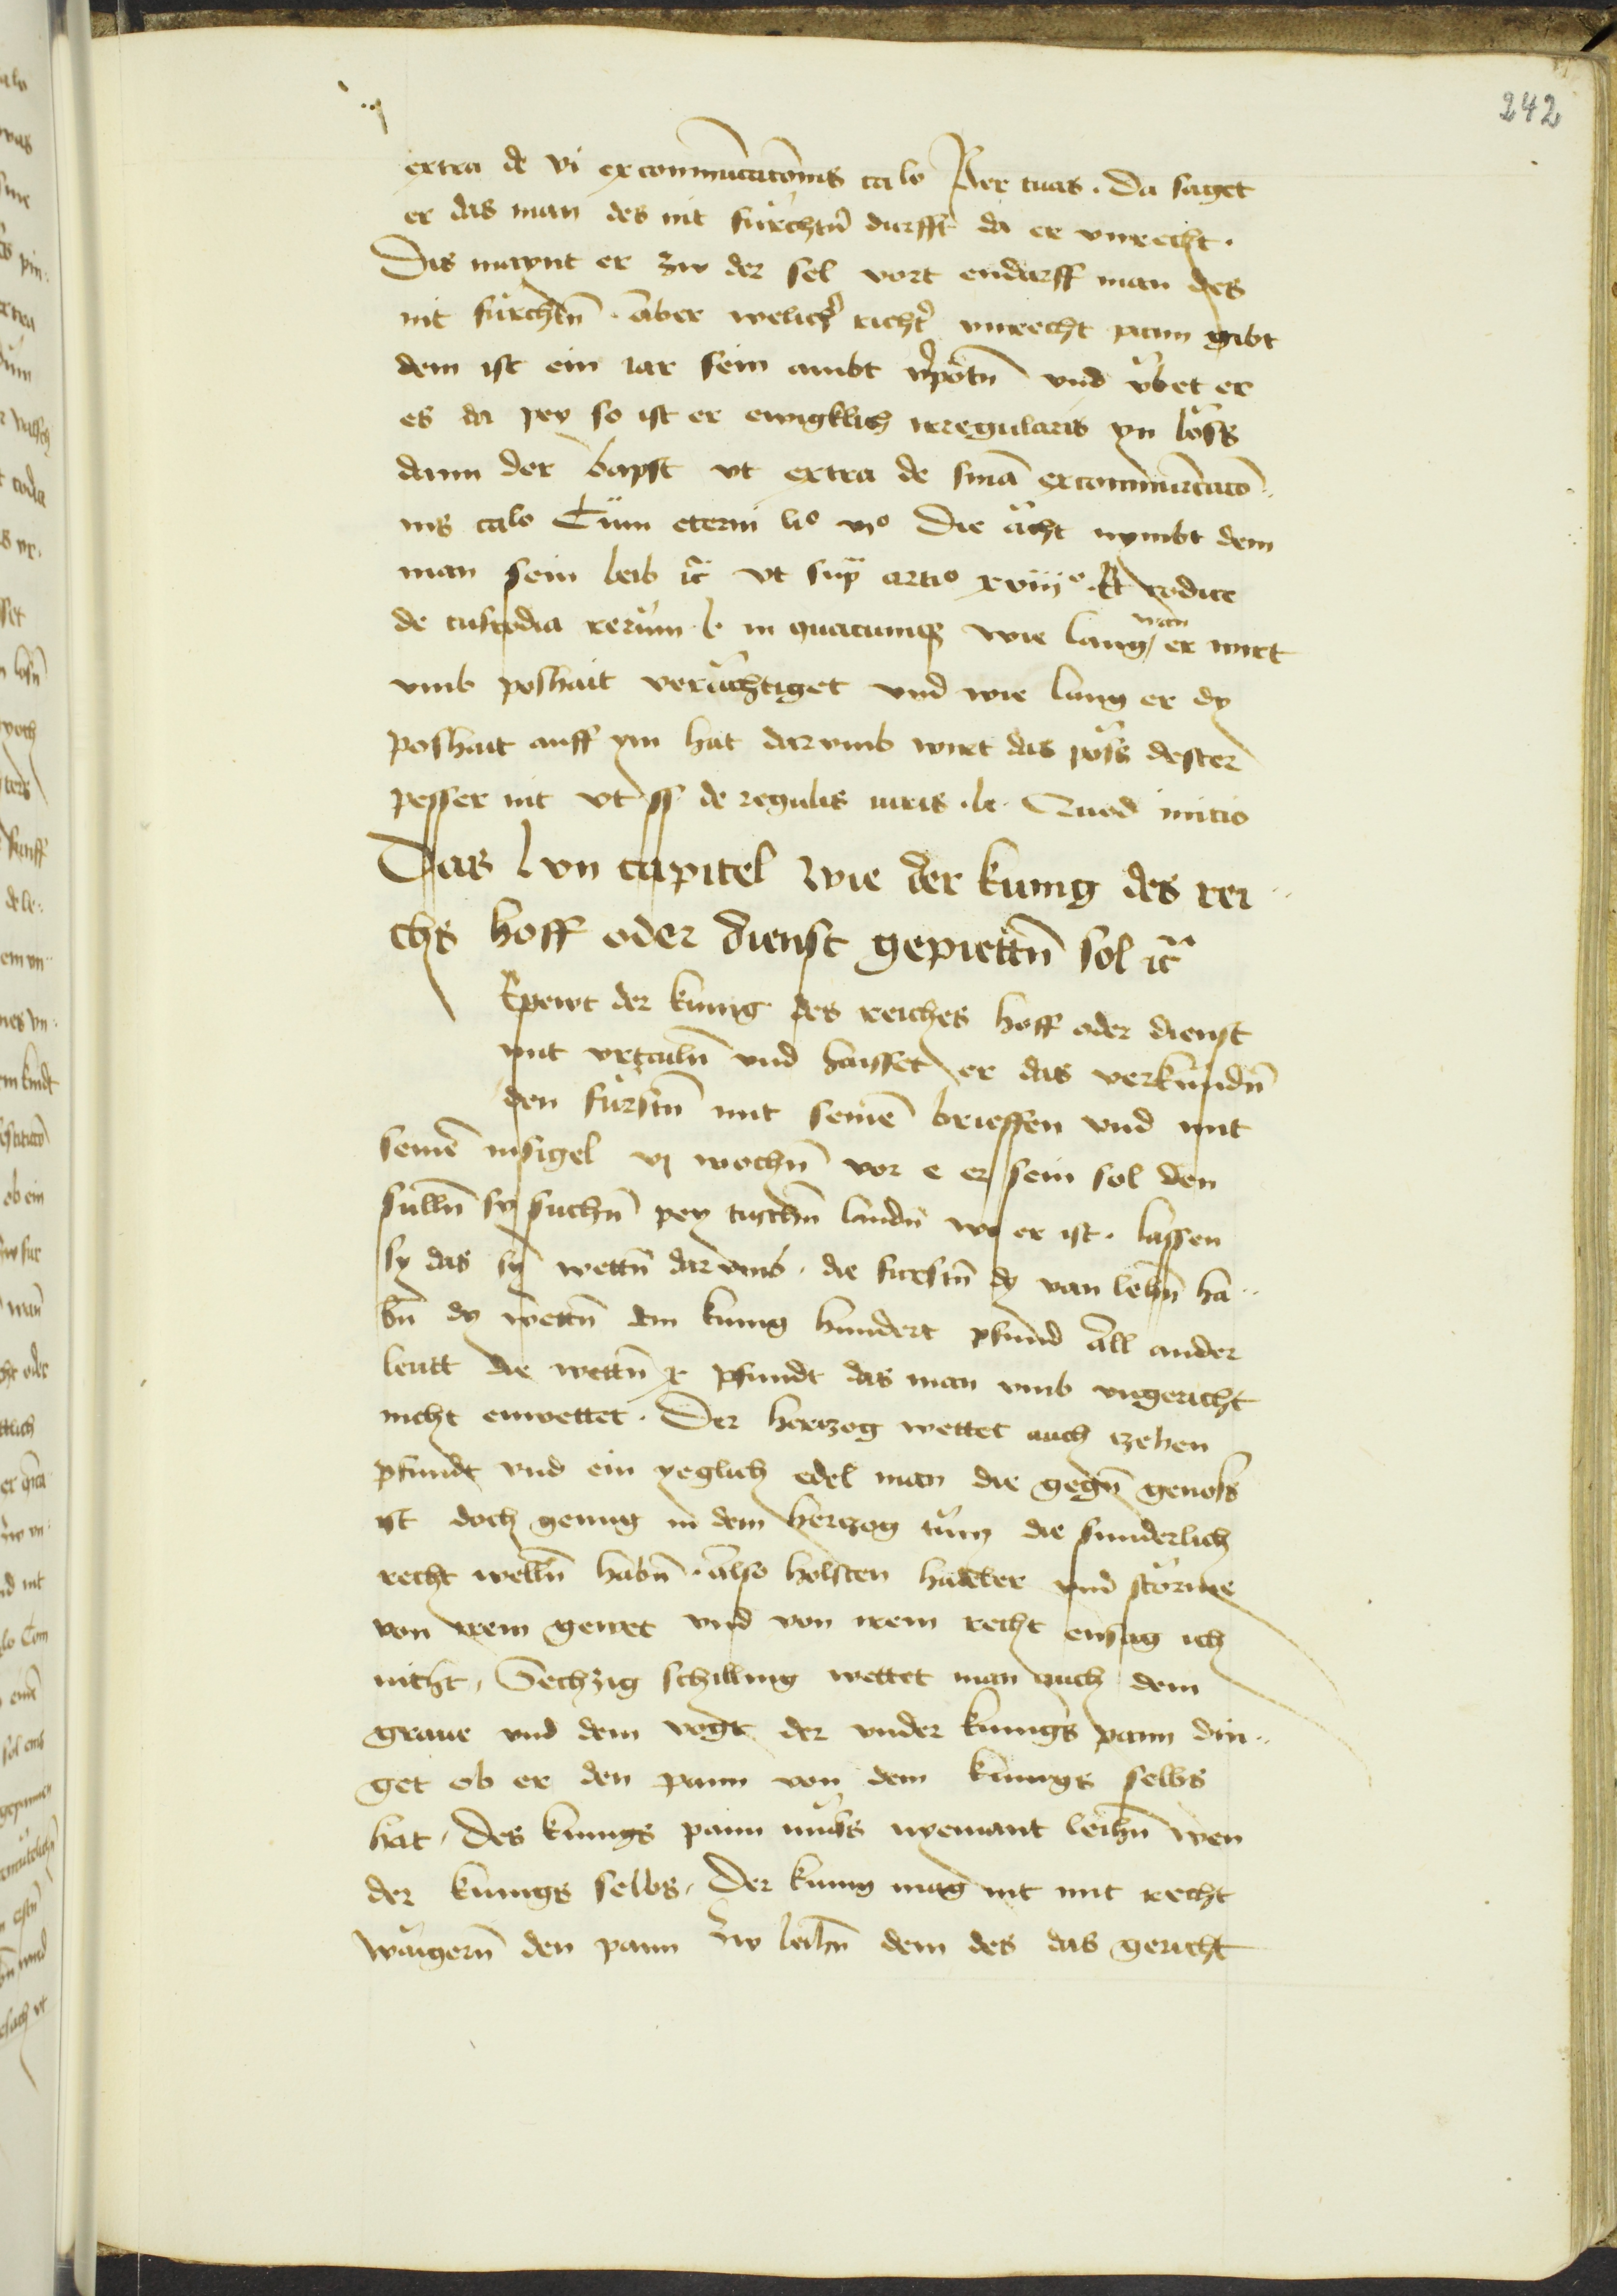 242
extra de vi excommunicatōnis calo Per tuas. Da saget
er das man des nit fürchtn̄ durfft da er vnrecht.
Das maynt er zw der sel vort endarff man des
nit fürchtn̄. aber welich͛ richt͛ vnrecht pann gibt
dem ist ein iar sein ambt v͛potn̄ vnd v̈bet er
es da pey so ist er ewigklich irregularis yn löss
dann der bapst vt extra de sniā excommunicacō-
nis calo Cum eterni lio vio Die ächt nymbt dem
man sein leib ꝛc̄ vt sup̄ artio xviijo. Et codice
de custodia rerum l in quacumqȝ wie lang man er wirt
vmb poshait verächtiget vnd wie lang er dy
poshait auff ym hat dar vmb wirt das pöss dester
pesser nit vt ff de regulis iuris . le . Quod initio
Das lvii capitel wie der kunig des rei-
chs hoff oder dienst gepiettn̄ sol ꝛc̄
Epewt der kunig des reiches hoff oder dienst
mit vrtailn̄ vnd haisset er das verkündn̄
den fürstn̄ mit seinē brieffen vnd mit
seinē insigel vj wochn̄ vor e er sein sol den
sülln̄ sy suchn̄ pey tuschn̄ landn̄ wo er ist. lassen
sy das sy wettn̄ dar vmb. die furstn̄ dy van lehn̄ ha-
bn̄ dy wettn̄ dem kunig hundert pfund all ander
leutt die wettn̄ x pfundt das man vmb vngericht
nicht enwettet. Der hertzog wettet auch zehen
pfundt vnd ein yeglich edel man die gegn̄ genoss
ist doch genug in dem hertzog tum die sunderlich
recht welln̄ habn̄. also holsten hadeler vnd störme
von irem gewet vnd von irem recht ensag ich
nicht, Sechzig schilling wettet man auch dem
graue vnd dem vogt der vnder kunigs pann din-
get ob er den pann von dem kunigs selbs
hat, des kunigs pann muss nyemant leihn̄ wen
der kunigs selbs, Der kunig mag nit mit recht
wäigern̄ den pann zw leihn̄ dem des das gericht